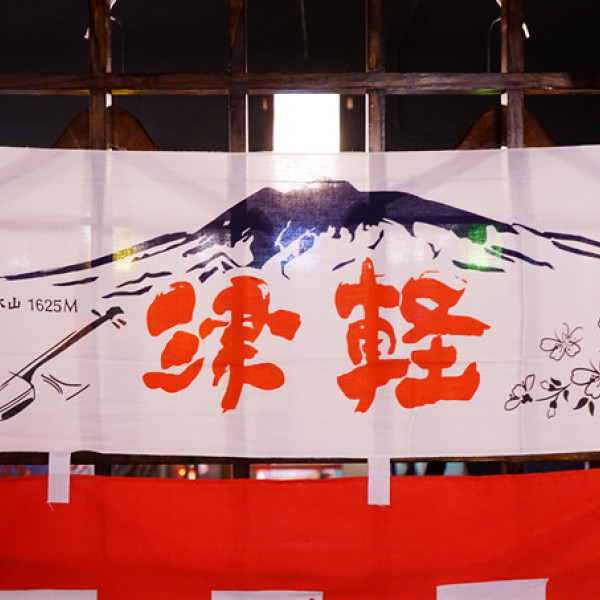 木山 1625M
津軽